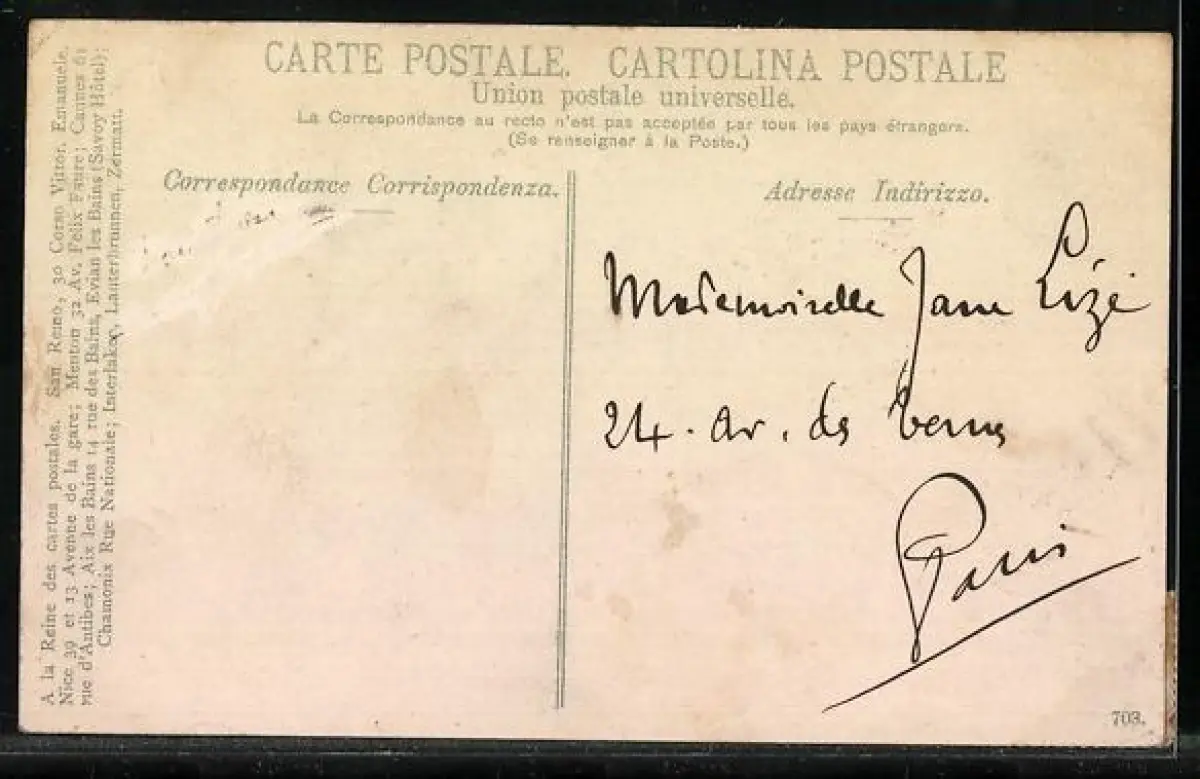 CARTE POSTALE. CARTOLINA POSTALE
Union postale universelle.
La Correspondance au recto n'est pas acceptée par tous les pays étrangers.
(Se renseigner à la Poste.)
Correspondance Corrispondenza.
Adresse Indirizzo.
Mademoiselle Jane Lizé
24. Av. des Ternes
Paris
A la Reine des cartes postales. San Remo, 30 Corso Vittor. Emanuele.
Nice 39 et 13 Avenue de la gare; Menton 32 Av. Felix Faure; Cannes 61
rue d'Antibes; Aix les Bains 14 rue des Bains, Evian les Bains (Savoy Hôtel);
Chamonix Rue Nationale; Interlaken, Lauterbrunnen, Zermatt.
703.